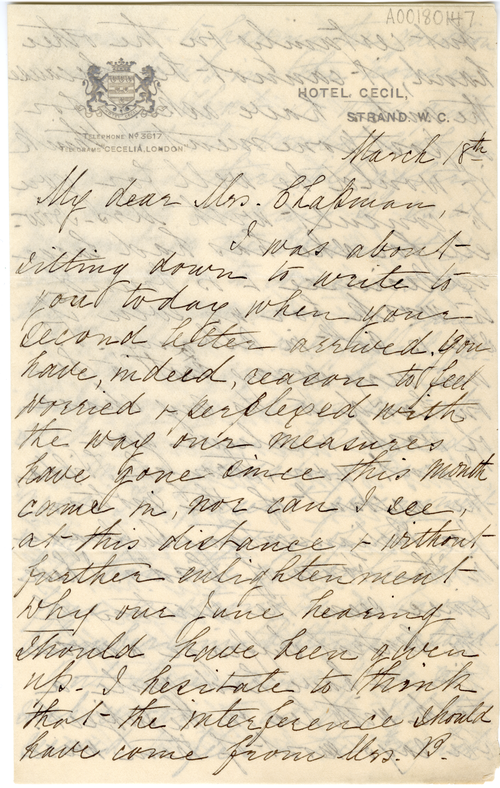 A00180147
HOTEL CECIL,
STRAND. W. C.
TELEPHONE Nº 3617
TELEGRAMS "CECELIA, LONDON"
March 18th
My dear Mrs. Chapman,
I was about
sitting down to write to
you today when your
second letter arrived. You
have, indeed, reason to feel
worried & perplexed with
the way our measures
have gone since this month
came in, nor can I see,
at this distance & without
further enlightenment
why our June hearing
should have been given
up. I hesitate to think
that the interference should
have come from Mrs. B.